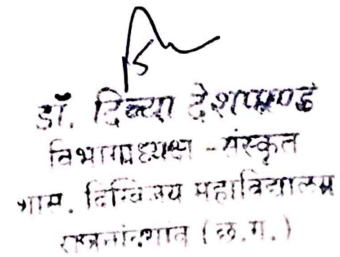 डॉ. दिव्या देशपाण्डे
विभागाध्यक्ष - संस्कृत
शास. दिग्विजय महाविद्यालय
राजनांदगांव (छ.ग.)